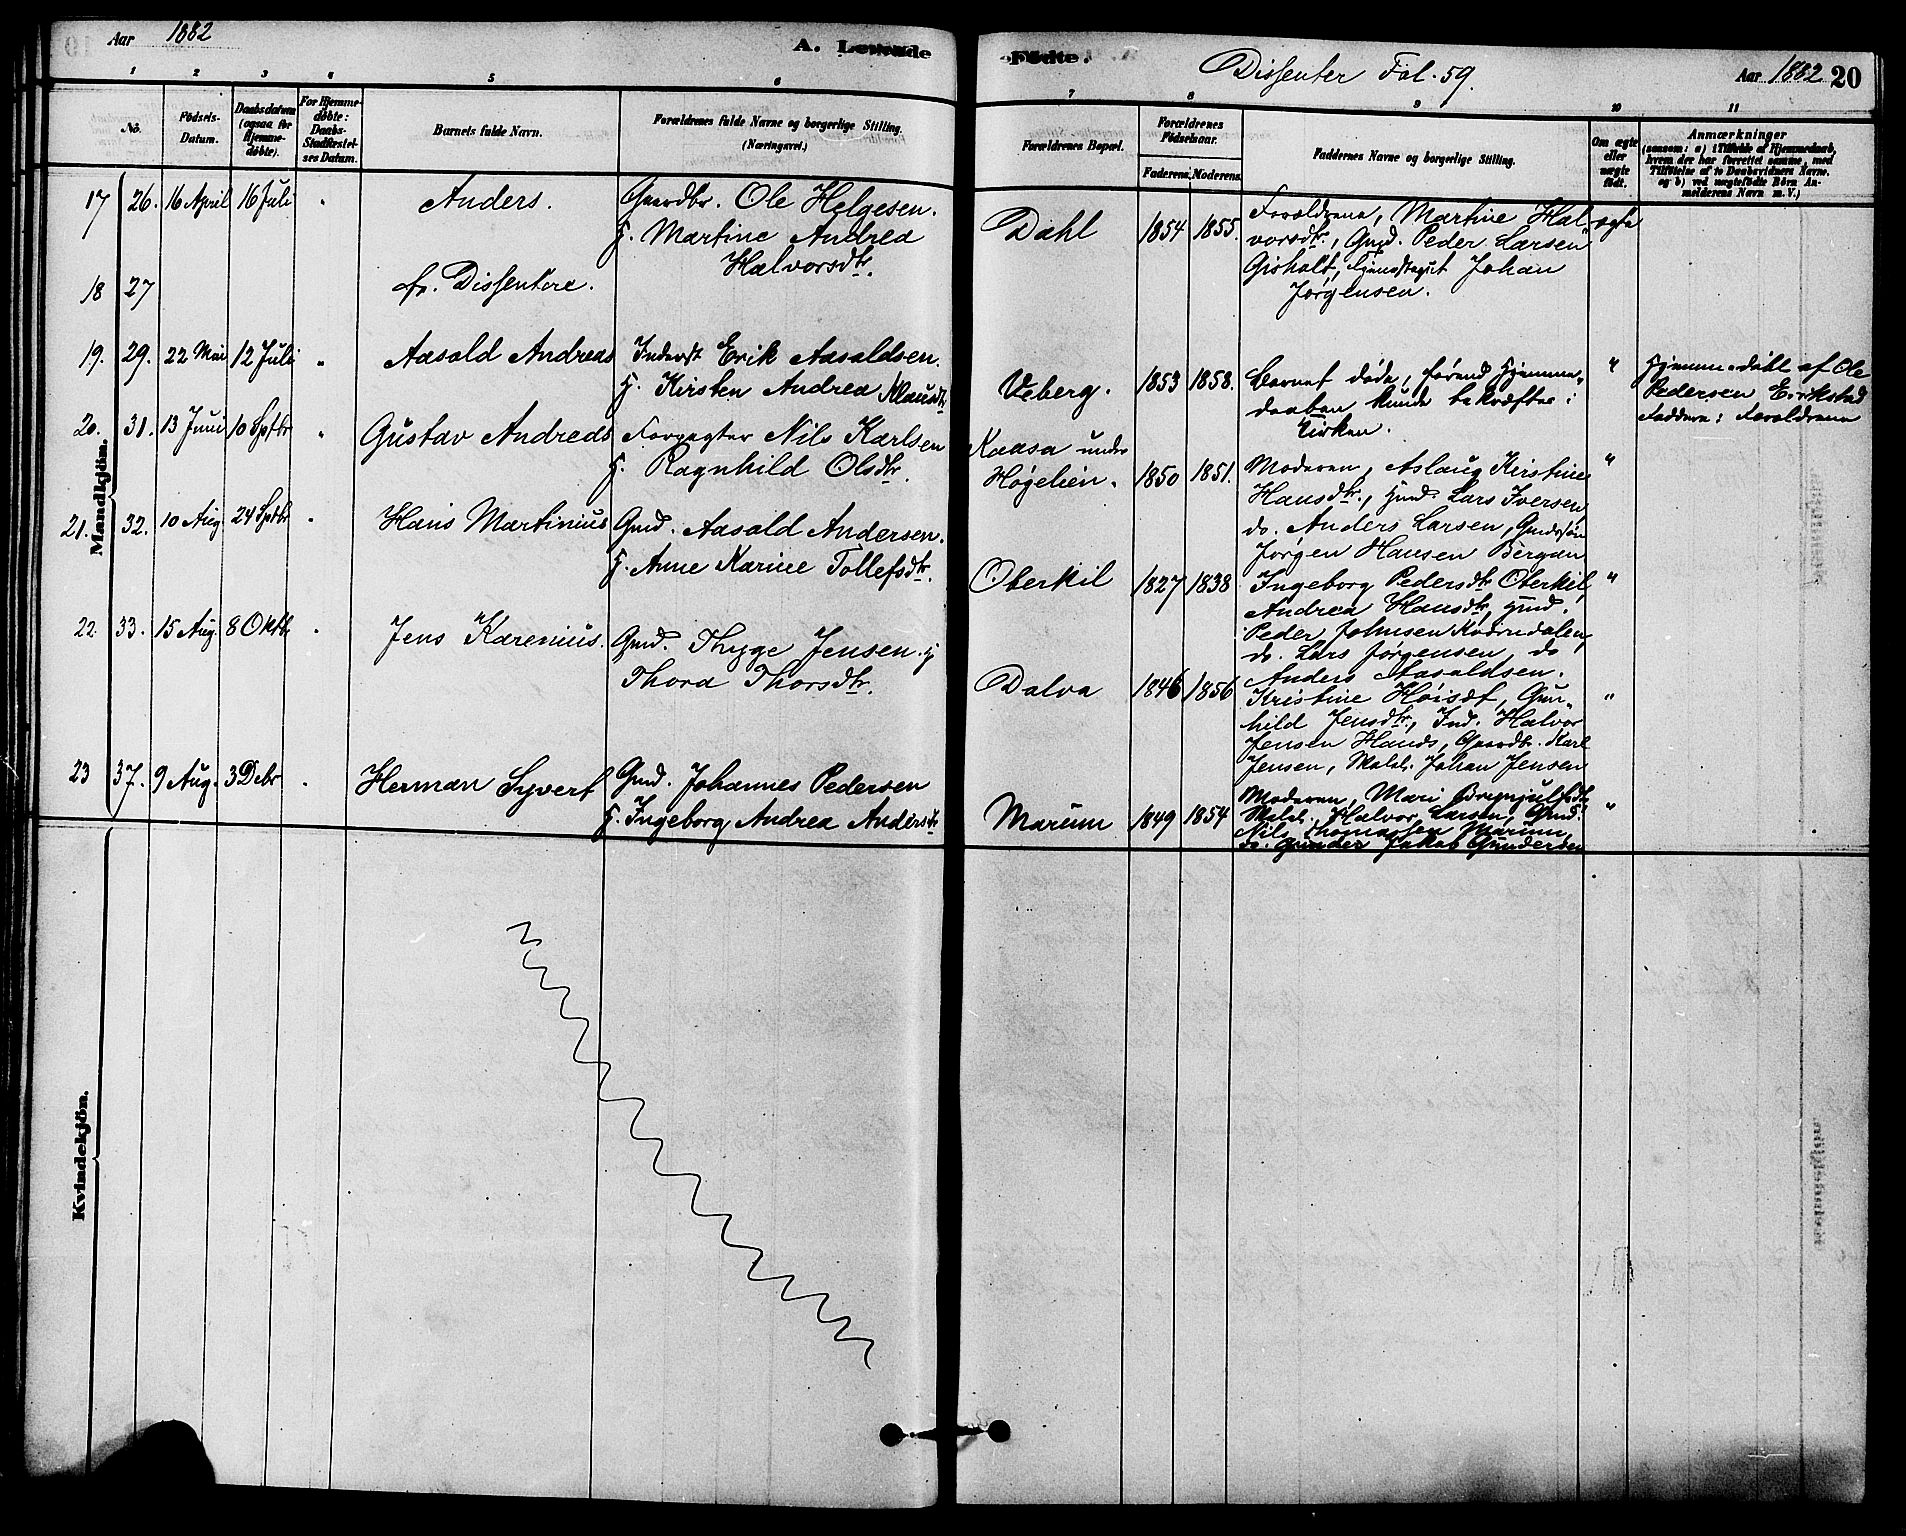 Aar 1882
A. Levende
Fødte.
Dissenter Fol. 59.
Aar 1882 20
1 2 3 4 5 6
7 8 9 10 11
No.
Fødsels-Datum.
Daabsdatum (ogsaa for Hjemme-døbte).
For Hjemme-døbte: Daabs-Stadfæstel-ses Datum.
Barnets fulde Navn.
Forældrenes fulde Navne og borgerlige Stilling. (Næringsvei.)
Forældrenes Bopæl.
Forældrenes Fødselsaar.
Faderens. Moderens.
Faddernes Navne og borgerlige Stilling.
Om ægte eller uægte født.
Anmærkninger
(saasom: a) i Tilfælde af Hjemmedaab,
hvem der har forrettet samme, med
Tilføielse af to Daabsvidners Navne.
og b) ved uægtefødte Børn An-
melderens Navn m. V.)
Mandkjön.
17 26. 16 April 16 Juli " Anders. Gaardbr. Ole Helgesen.
H. Martine Andrea
Halvorsdtr.
Dahl 1854 1855. Forældrene, Martine Hal- ægte
vorsdtr., Gmd. Peder Larsen
Gisholt, Johan
Jørgensen.
18 27 fr. Dissentere.
19. 29. 22 Mai 12 Juli " Aasold Andreas Inderst Erik Aasoldsen.
H. Kirsten Andrea Klausdtr
Veberg. 1853 1858. Barnet døde, førend Hjemme- "
daaben kunde bekræftes i
Kirken.
Hjemmedøbt af Ole
Pedersen Erikstad
Faddere: Forældrene
20. 31. 13 Juni 10 Sptbr " Gustav Andreas Forpagter Nils Karlsen
H. Ragnhild Olsdtr.
Kaasa under
Høgelien. 1850 1851. Moderen, Aslaug Kirstine "
Hansdtr., Gmd. Lars Iversen
do. Anders Larsen, Gmdssøn
Jørgen Hansen Bergan
21. 32. 10 Aug 24 Sptbr " Hans Martinius Gmd. Aasold Andersen.
H. Anne Karine Tollefsdtr.
Oterkil 1827 1838 Ingeborg Pedersdtr Oterkil, "
Andrea Hansdtr, Gmd.
Peder Johnsen
do. Lars Jørgensen, do
Anders Aasoldsen.
22. 33. 15 Aug. 8 Oktb. " Jens Karenius. Gmd. Thygge Jensen. H
Thora Thorsdtr.
Dalva 1846 1856 Kristine, Gun- "
hild Jensdtr., Ind. Halvor
Jensen, Gaardbr. Karl
Jensen, Johan Jensen
23 37. 9 Aug. 3 Debr " Herman Syvert Gmd. Johannes Pedersen
H. Ingeborg Andrea Andersdtr
Marum 1849 1854 Moderen, Mari Brynjulfsdtr "
Halvor Larsen, Gmd.
Nils Thomassen Marum,
do. Gunder Jakob Gundersen
Kvindekjön.